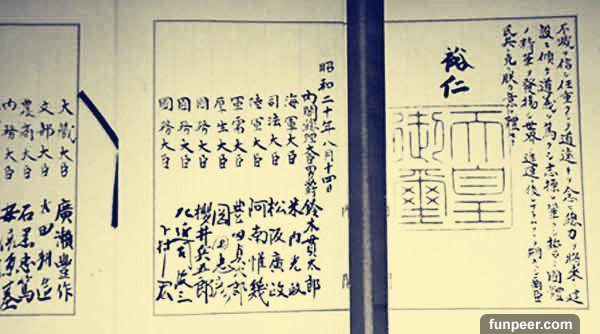 不滅ヲ信シ任重クシテ道遠キヲ念ヒ總力ヲ將來ノ建
設ニ傾ケ道義ヲ篤クシ志操ヲ鞏クシ誓テ國體
ノ精華ヲ發揚シ世界ノ進運ニ後レサラムコトヲ期スヘシ爾臣
民其レ克ク朕カ意ヲ體セヨ
裕仁
天皇
御璽
昭和二十年八月十四日
内閣總理大臣男爵 鈴木貫太郎
海軍大臣 米内光政
司法大臣 松阪廣政
陸軍大臣 阿南惟幾
軍需大臣 豐田貞次郎
厚生大臣 岡田忠彦
國務大臣 櫻井兵五郎
國務大臣 左近司政三
國務大臣 下村宏
大藏大臣 廣瀬豐作
文部大臣 太田耕造
農商大臣 石黒忠篤
内務大臣 安倍源基
funpeer.com